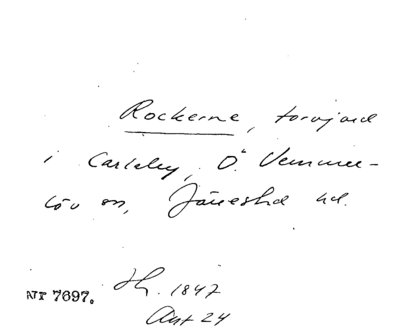 Rockerne, torvjord
i Carleby, Ö. Vemmer-
löv sn, Järrestad hd.
NR 7697.
Lh. 1847
Akt 24